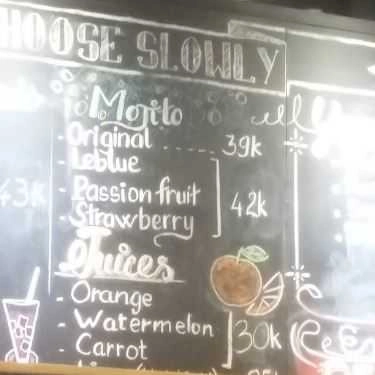 CHOOSE SLOWLY
Mojito
- Original ---- 39k
- Leblue
- Passion fruit 42k
- Strawberry
43k
Juices
- Orange
- Watermelon 30k
- Carrot